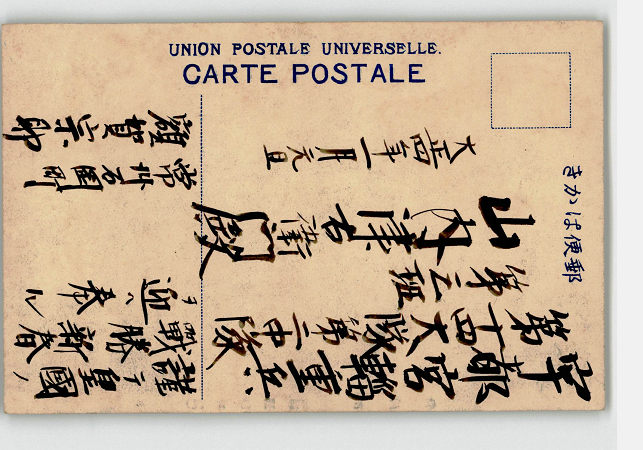 UNION POSTALE UNIVERSELLE.
CARTE POSTALE
きかは便郵
宇都宮輜重兵
第十四大隊第二中隊
第二班
山内津右衛门殿
大正四年一月元旦
謹テ皇國ノ
戰勝新春
ヲ迎ハ奉ル
常州
賀宗